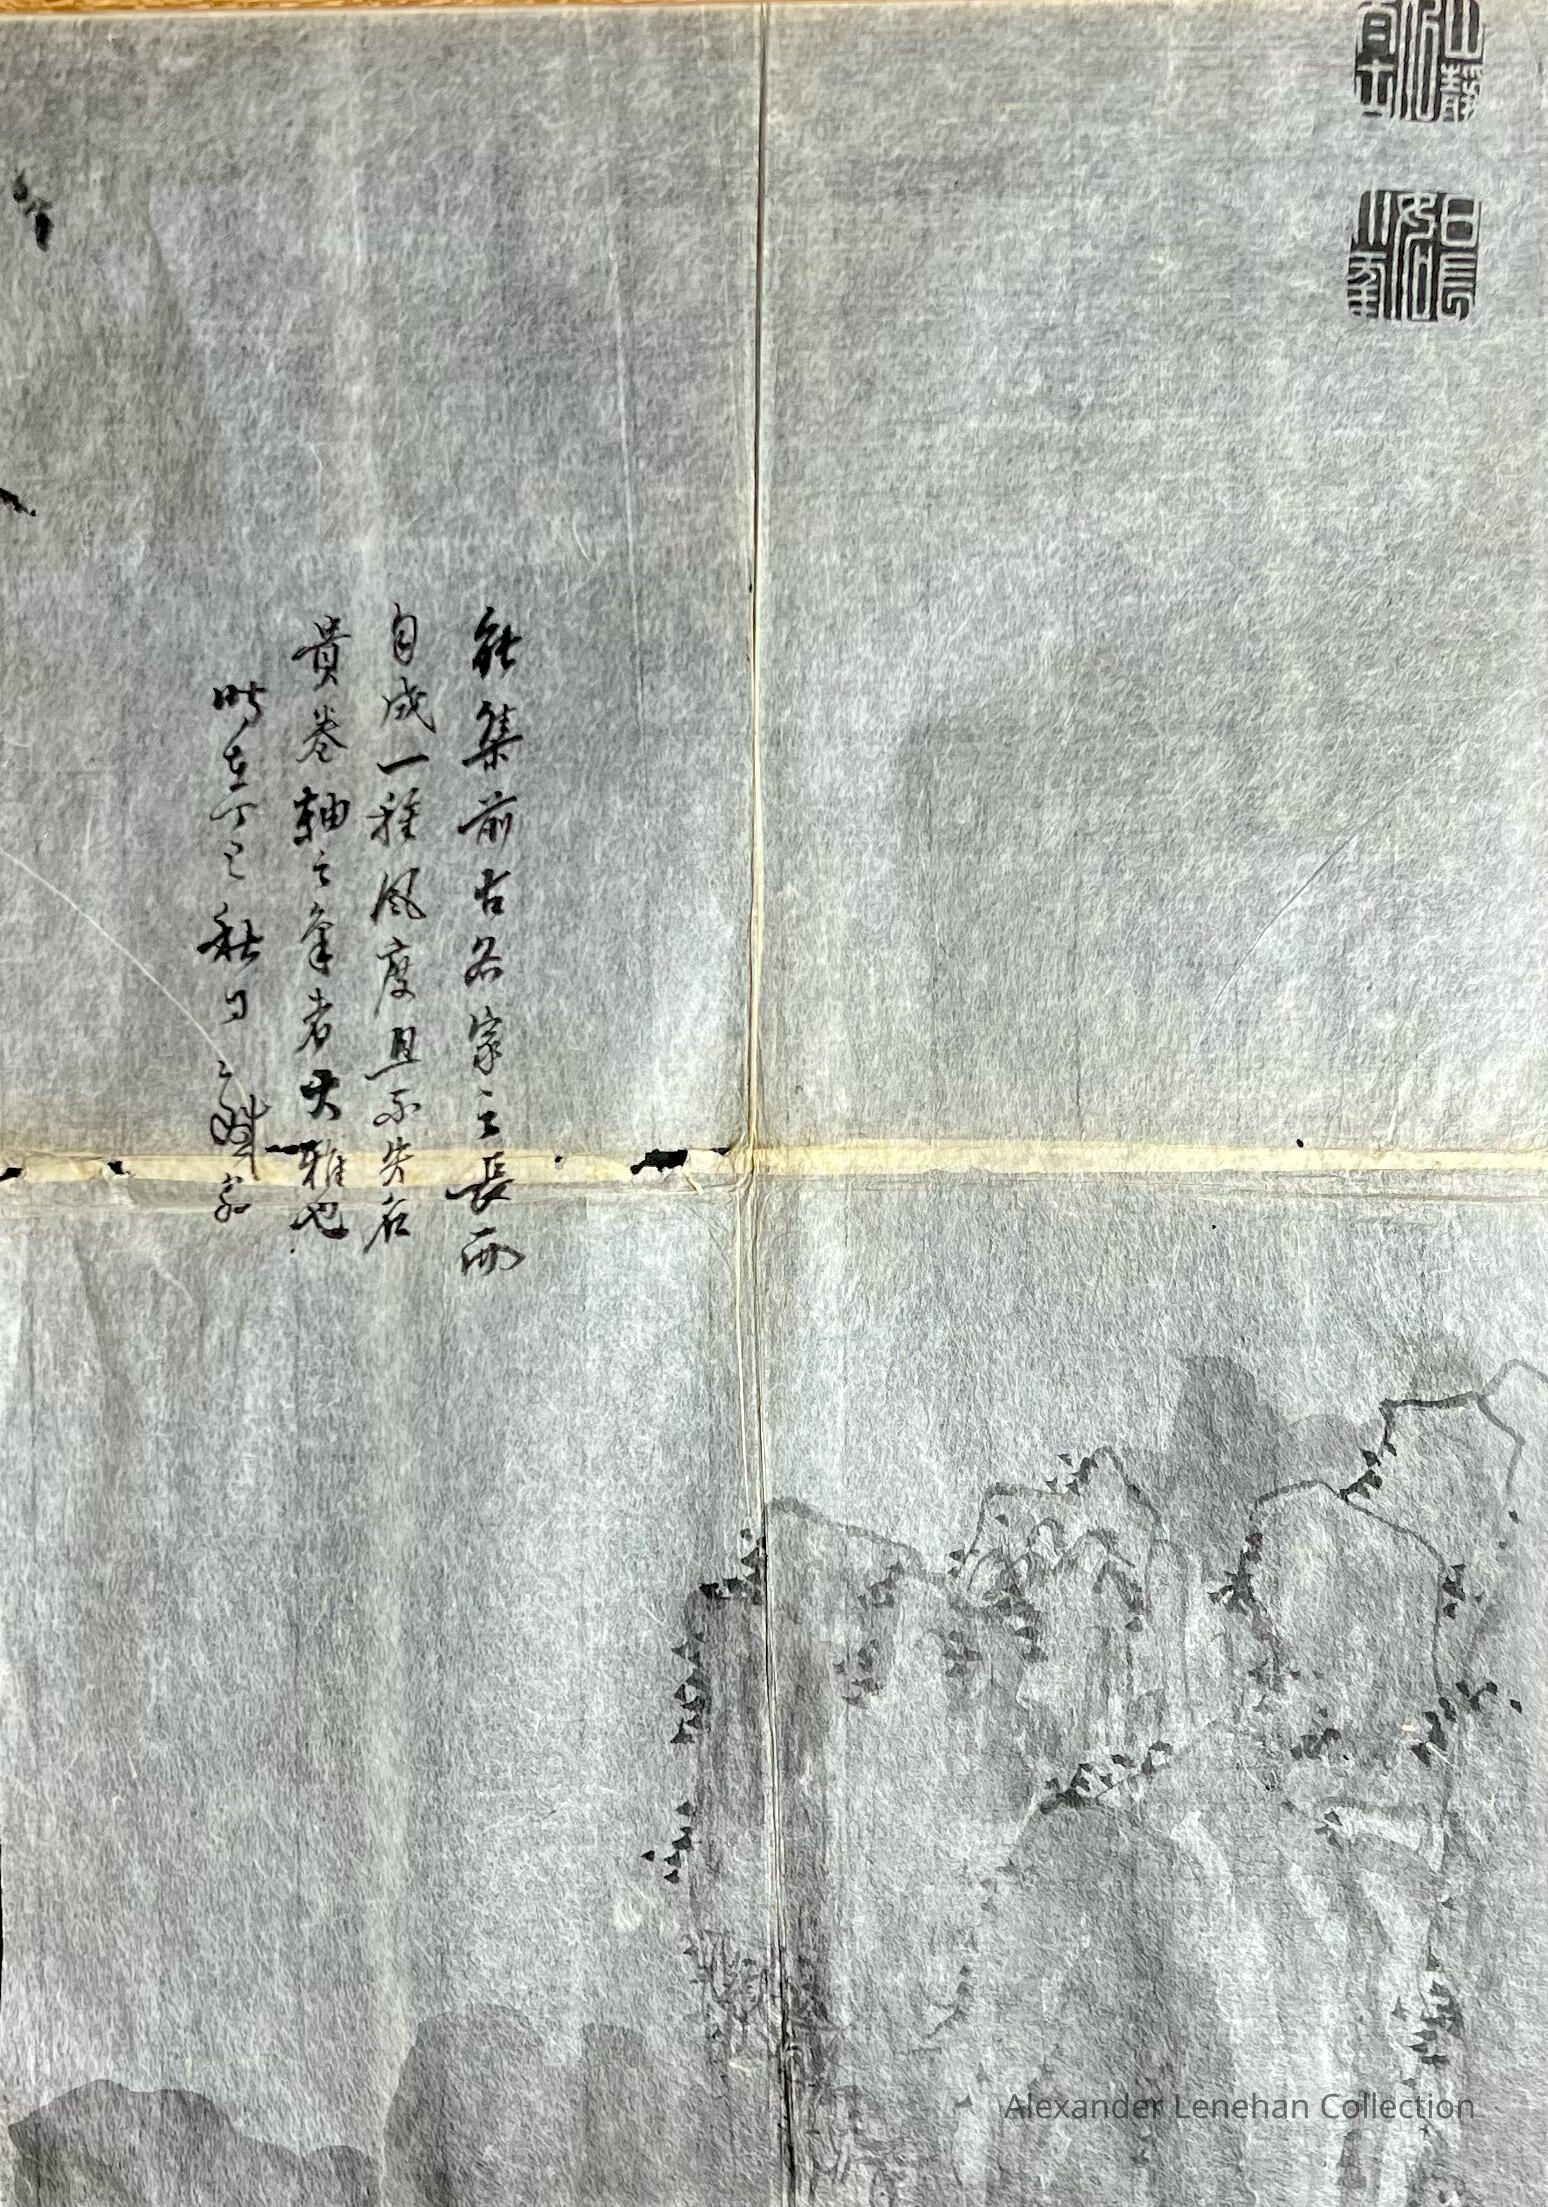 能集前古名家之長而
自成一種風度且不失名
貴卷軸之氣者大雅也
時在丁巳秋日
Alexander Lenehan Collection